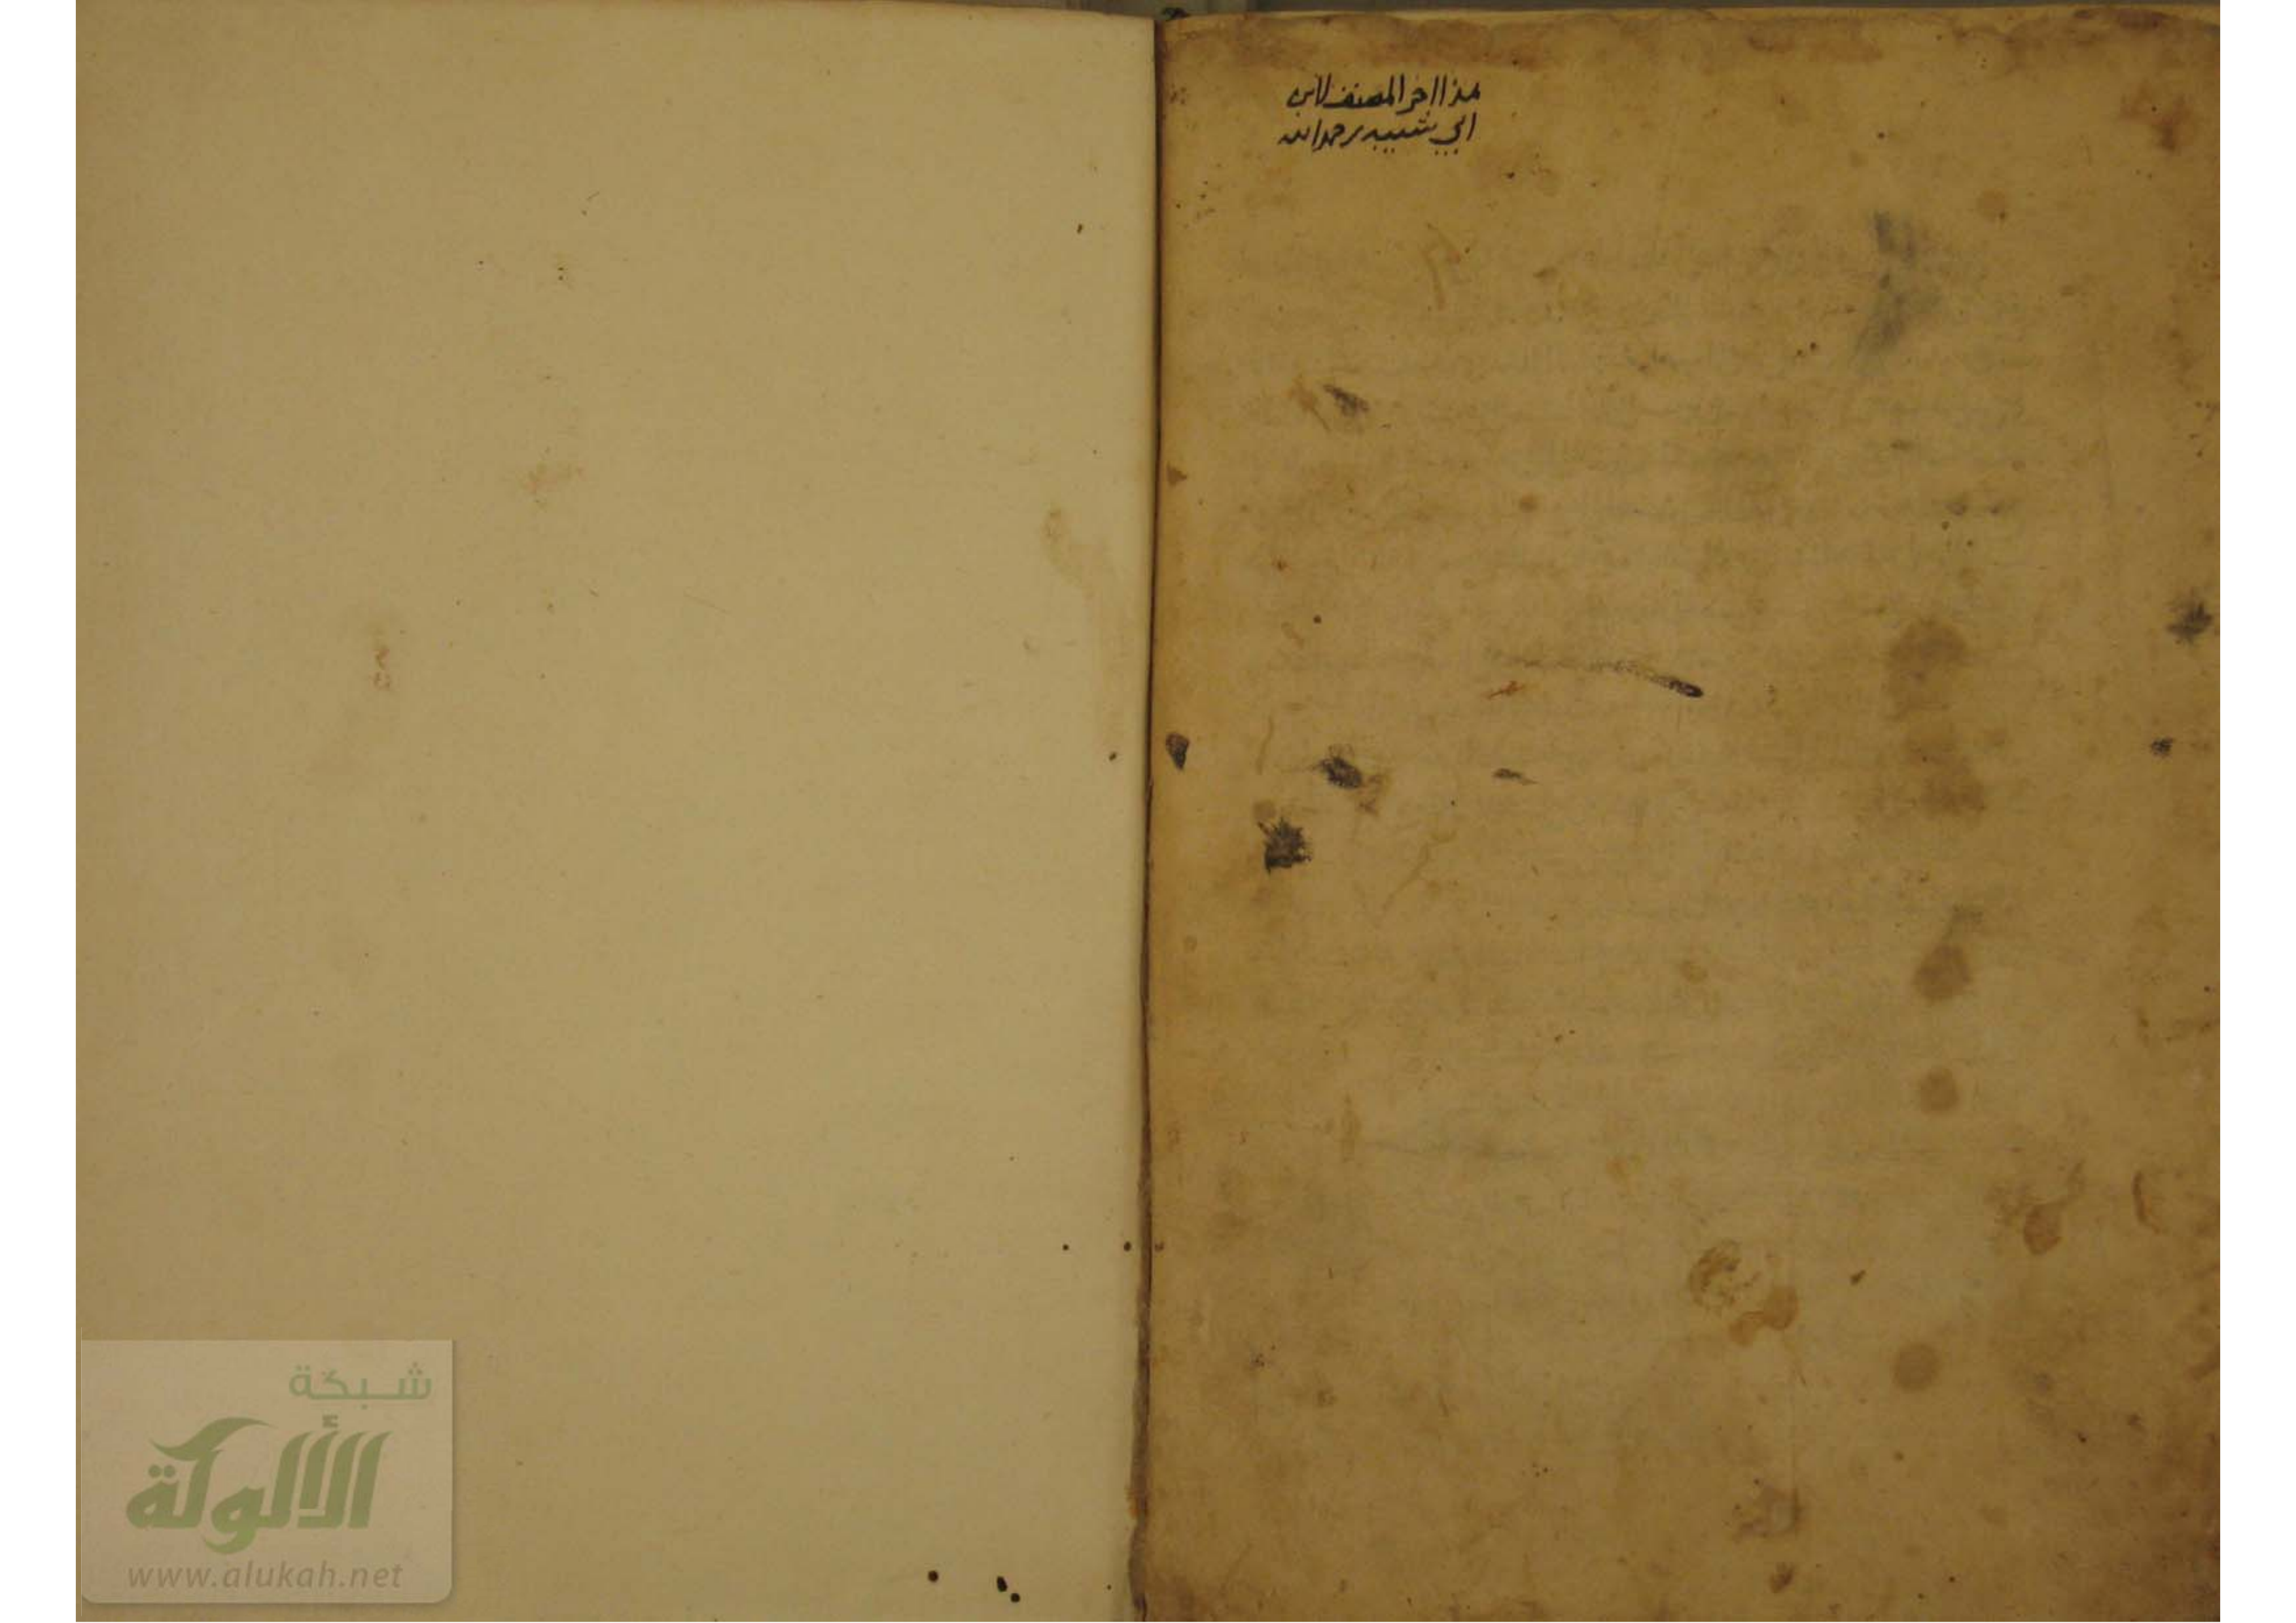 هذا اخر المصنف لابن
ابي شيبه رحمه الله
شبكة
الألوكة
www.alukah.net